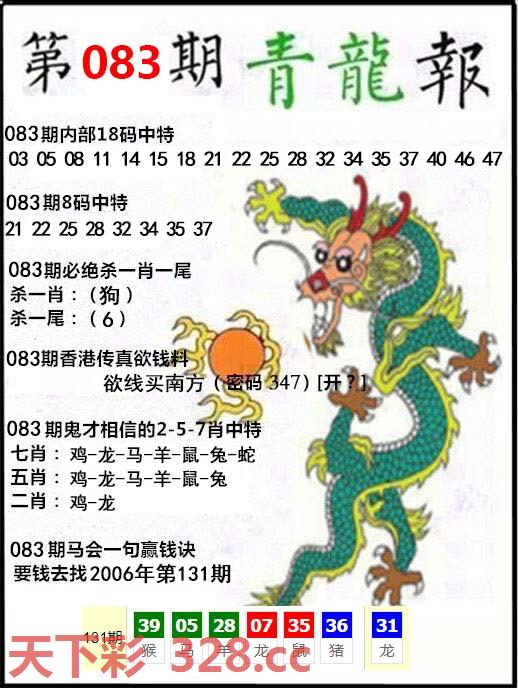 第083期青龍報
083期内部18码中特
03 05 08 11 14 15 18 21 22 25 28 32 34 35 37 40 46 47
083期8码中特
21 22 25 28 32 34 35 37
083期必绝杀一肖一尾
杀一肖：（狗）
杀一尾：（6）
083期香港传真欲钱料
欲线买南方（密码 347）[开？]
083期鬼才相信的2-5-7肖中特
七肖：鸡-龙-马-羊-鼠-兔-蛇
五肖：鸡-龙-马-羊-鼠-兔
二肖：鸡-龙
083期马会一句赢钱诀
要钱去找2006年第131期
131期 39 05 28 07 35 36 31
猴 马 羊 龙 鼠 猪 龙
天下彩 328.cc